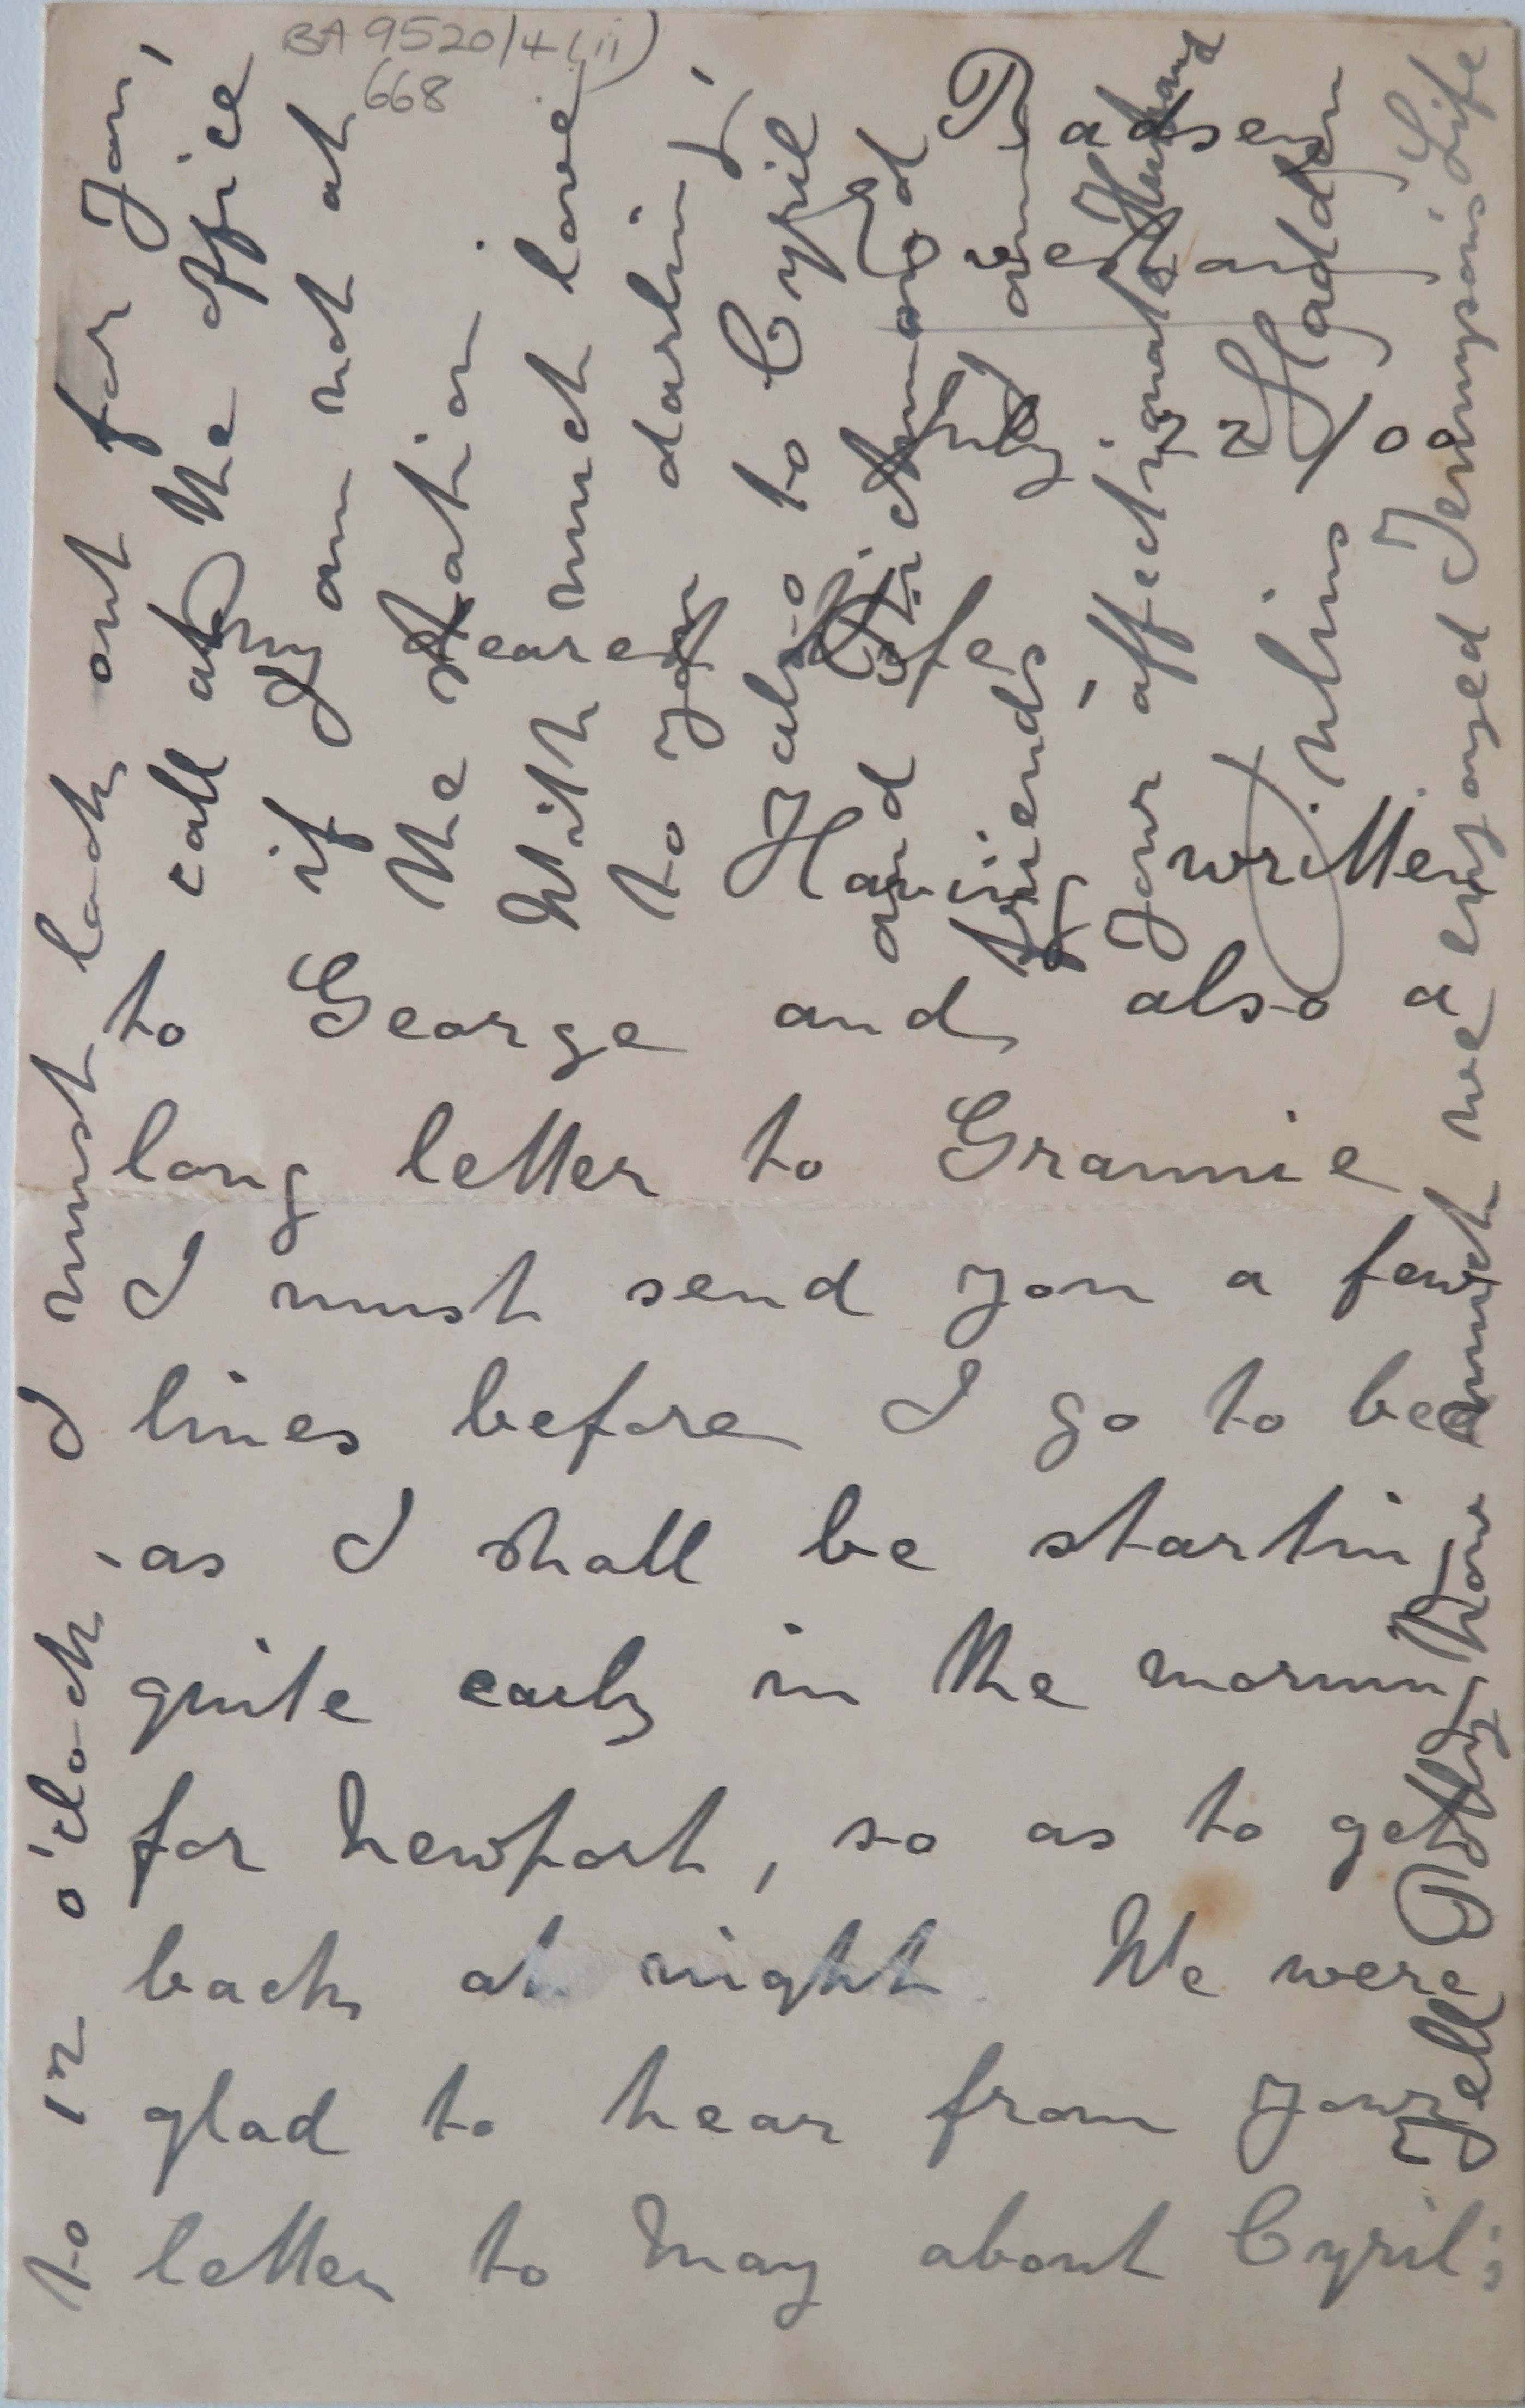 BA 9520/4(ii)
668
Badsey
Sunday
July 22/00
My dearest Wife
Having written
to George and also a
long letter to Grannie
I must send you a few
lines before I go to bed
as I shall be starting
quite early in the morning
for Newport, so as to get
back at night. We were
glad to hear from your
letter to May about Cyril;
to 12 o'clock, I must look out for you,
call at the office
if I am not at
the station.
With much love
to you darling,
& also to Cyril
and Richmond
friends
Your affectionate Husband
Julius Sladden
Tell Polly how much we enjoyed Tennyson's Life